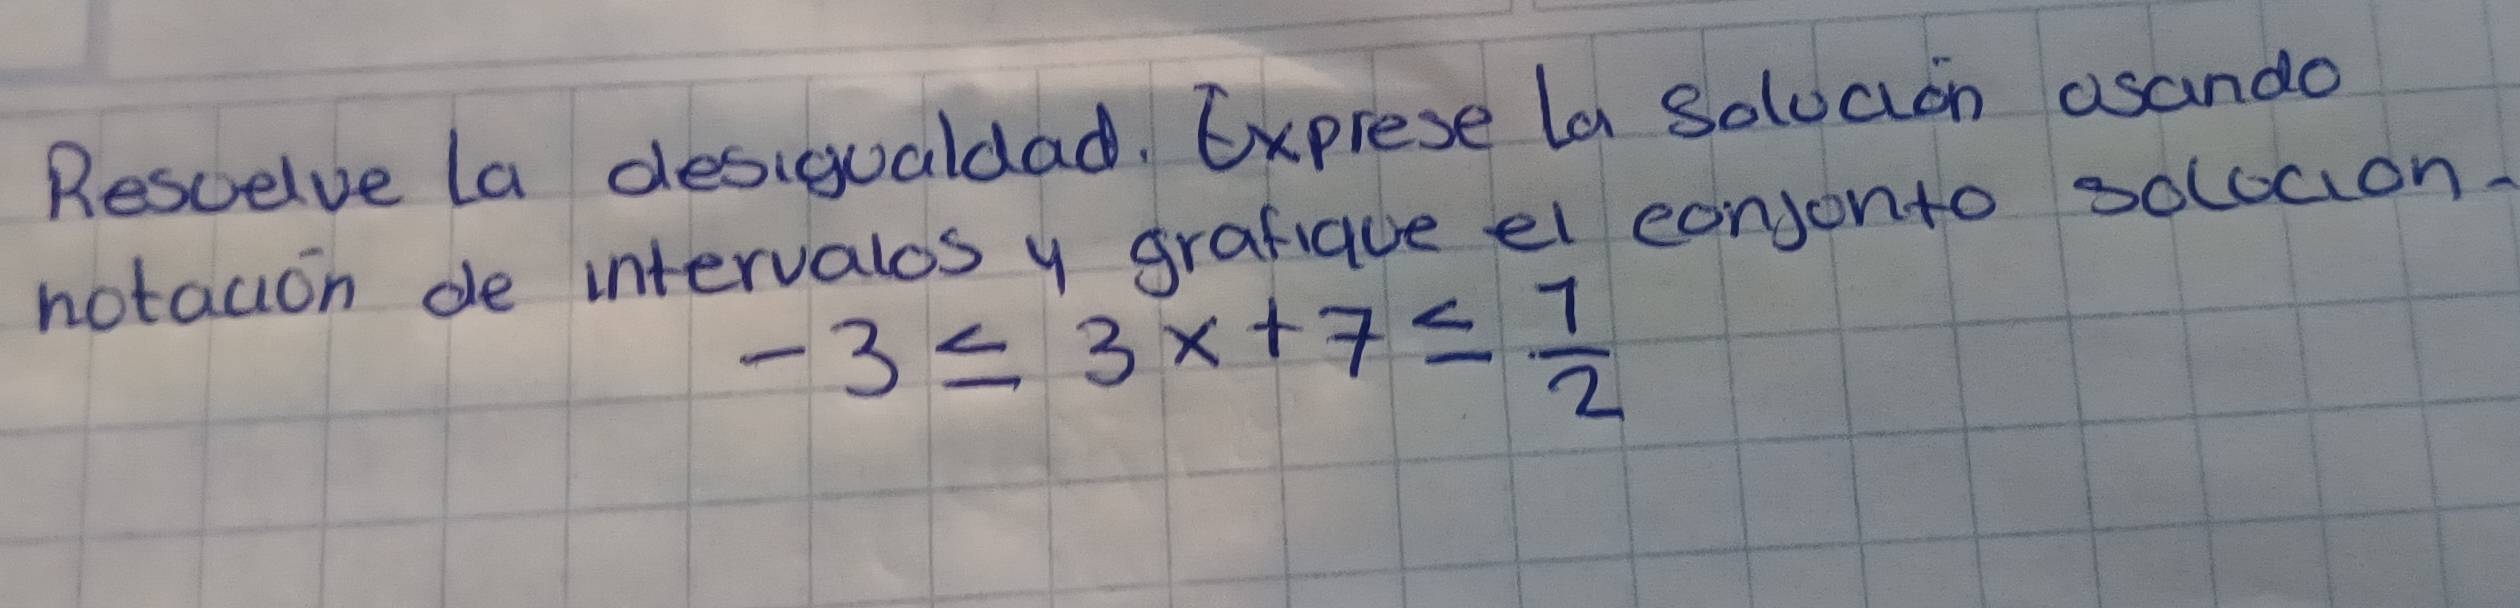 Resuelve la desigualdad. Exprese la solución usando
notación de intervalos y grafique el conjunto solución.
-3 ≤ 3x + 7 ≤ 1/2